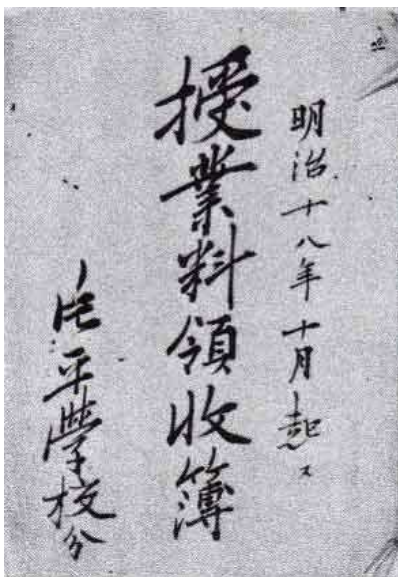 明治十八年十月起ス
授業料領収簿
平學校分